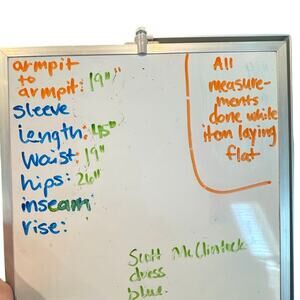 armpit
to
armpit: 19"
sleeve
length: 45"
Waist: 19"
hips: 26"
inseam:
rise:
All
measure-
ments
done while
item laying
flat
Scott McClintock
dress
blue